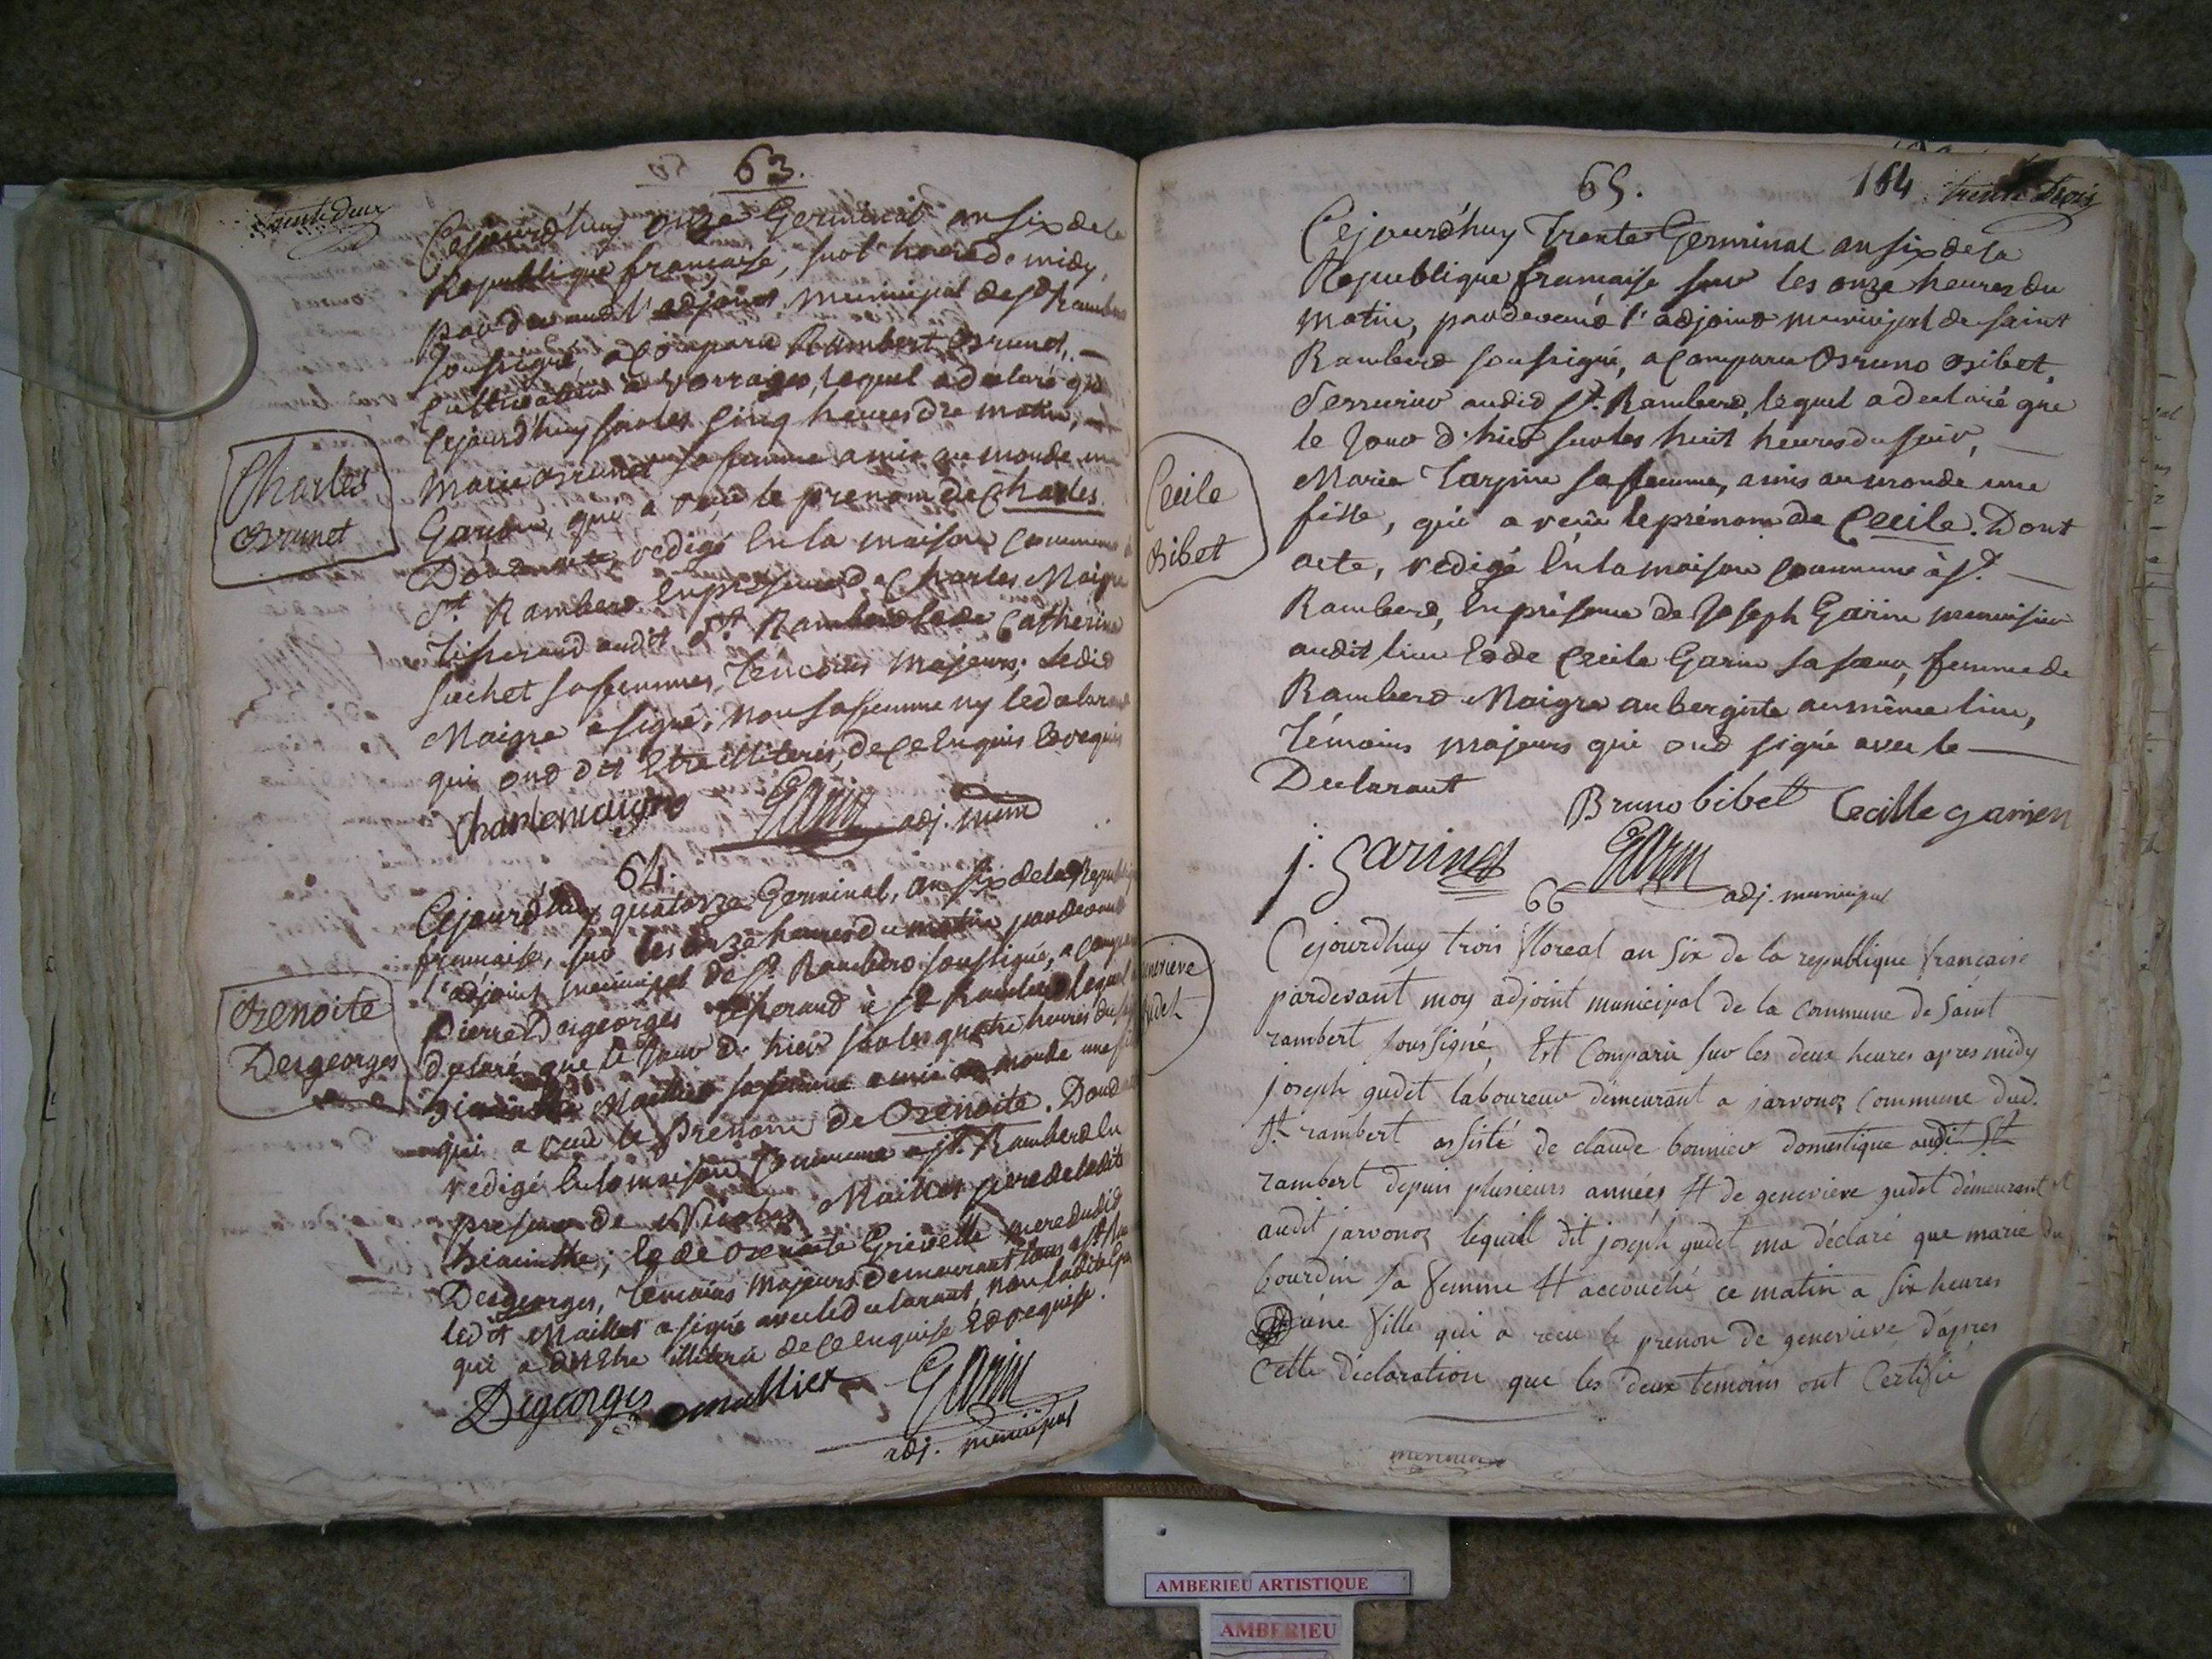 trente deux
63.
Cejourd'huy onze Germinal an six de la
Republique française, sur l'heure de midy,
pardevant l'adjoint municipal de St Rambert
soussigné, a comparu Rambert Brunet,
Cultivateur à Vorrages, lequel a déclaré que
cejourd'huy sur les cinq heures du matin,
Marie Brunet sa femme a mis au monde un
Garçon, qui a reçu le prenom de Charles.
Dont acte, redigé en la maison commune à
St Rambert en presence de Charles Maigre
Tisserand audit St Rambert et de Catherine
Suchet sa femme, témoins majeurs; ledit
Maigre a signé, non sa femme ny le declarant
qui ont dit etre illiterés, de ce enquis et requis
Charles
Brunet
Charlemaigre Garin adj. mun
64.
Cejourd'huy quatorze Germinal, an six de la Republique
francaise, sur les onze heures du matin pardevant
l'adjoint municipal de St Rambert soussigné, a comparu
Pierre Desgeorges Tisserand à St Rambert lequel a
declaré que le jour d'hier sur les quatre heures du soir
Maillet sa femme a mis au monde une fille
qui a reçu le prenom de Benoite. Dont acte
redigé en la maison commune à St. Rambert en
presence de Nicolas Maillet pere de ladite
hiacinthe, et de Benoite Grivelle mere dudit
Desgeorges, témoins majeurs demeurant tous à St Rambert
ledit Maillet a signé avec le declarant, non ladite
qui a dit etre illiterée de ce enquise et requise.
Benoite
Desgeorges
Degeorges maillet Garin
adj. municipal
65.
164 trente trois
Cejourd'huy Trente Germinal an six de la
Republique francaise sur les onze heures du
matin, pardevant l'adjoint municipal de saint
Rambert soussigné, a comparu Bruno Bibet,
Serrurier audit St. Rambert, lequel a declaré que
le jour d'hier sur les huit heures du soir,
Marie Tarpin sa femme, a mis au monde une
fille, qui a reçu le prénom de Cecile. Dont
acte, redigé en la maison commune à St.
Rambert, en présence de Joseph Garin menuisier
audit lieu et de Cecile Garin sa sœur, femme de
Rambert Maigre aubergiste au même lieu,
témoins majeurs qui ont signé avec le
Declarant
Cecile
Bibet
Bruno bibet Cecille garien
j. Garin Garin
adj. municipal
66
Cejourdhuy trois floreal an six de la republique francaise
pardevant moy adjoint municipal de la commune de Saint
rambert soussigné, Est comparu sur les deux heures apres midy
joseph gudet laboureur demeurant a jarvonoz commune dud.
St rambert assisté de claude bonnier domestique audit St
rambert depuis plusieurs années et de genevieve gudet demeurant
audit jarvonoz lequell dit joseph gudet ma déclaré que marie du
bourdin sa femme est accouché ce matin a six heures
d'une fille qui a recu le prenon de genevieve d'apres
cette déclaration que les deux temoins ont certifié
genevieve
gudet
AMBERIEU ARTISTIQUE
AMBERIEU